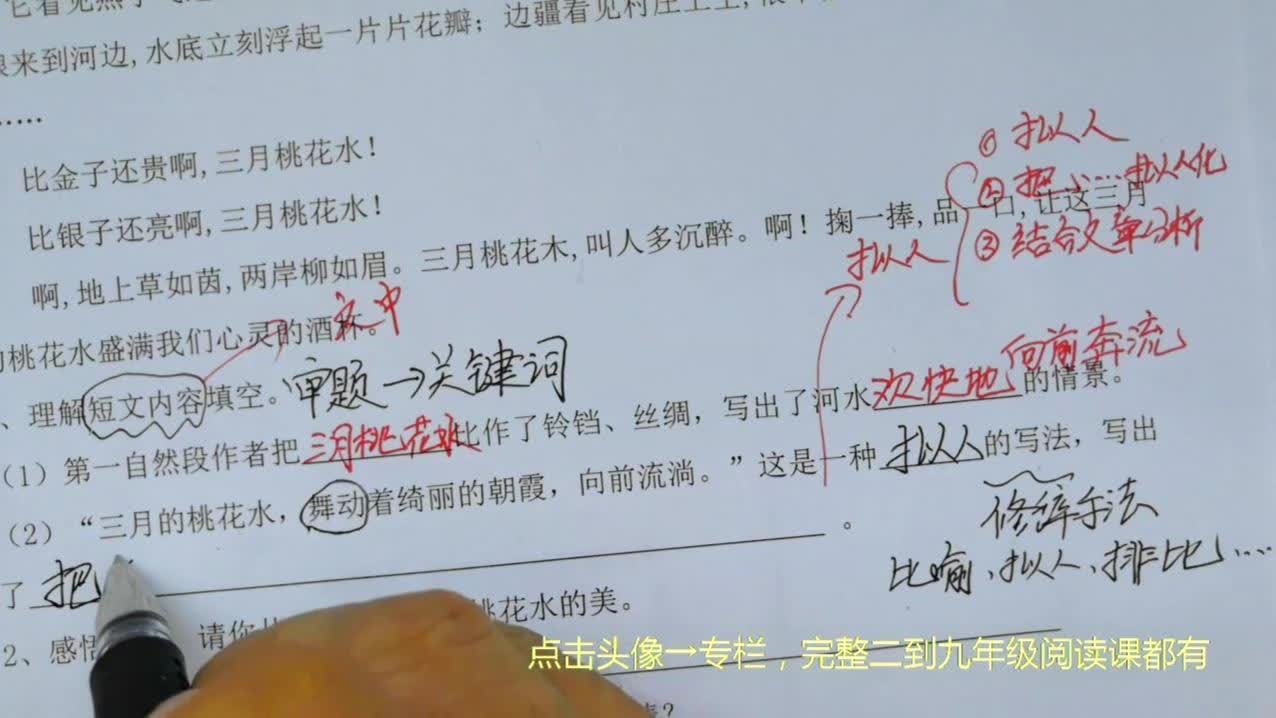 它看见燕子
来到河边,水底立刻浮起一片片花瓣；边疆看见村庄上空,
……
比金子还贵啊,三月桃花水！
比银子还亮啊,三月桃花水！
啊,地上草如茵,两岸柳如眉。三月桃花木,叫人多沉醉。啊！掬一捧,品一口,让这三月
的桃花水盛满我们心灵的酒杯。
① 拟人
② 把……拟人化
③ 结合文章分析
拟人
文中
、理解短文内容填空。审题→关键词
（1）第一自然段作者把三月桃花水比作了铃铛、丝绸，写出了河水欢快地向前奔流的情景。
（2）“三月的桃花水，舞动着绮丽的朝霞，向前流淌。”这是一种拟人的写法，写出
了把 。
修辞手法
比喻、拟人、排比……
2、感悟 请你 桃花水的美。
点击头像→专栏，完整二到九年级阅读课都有